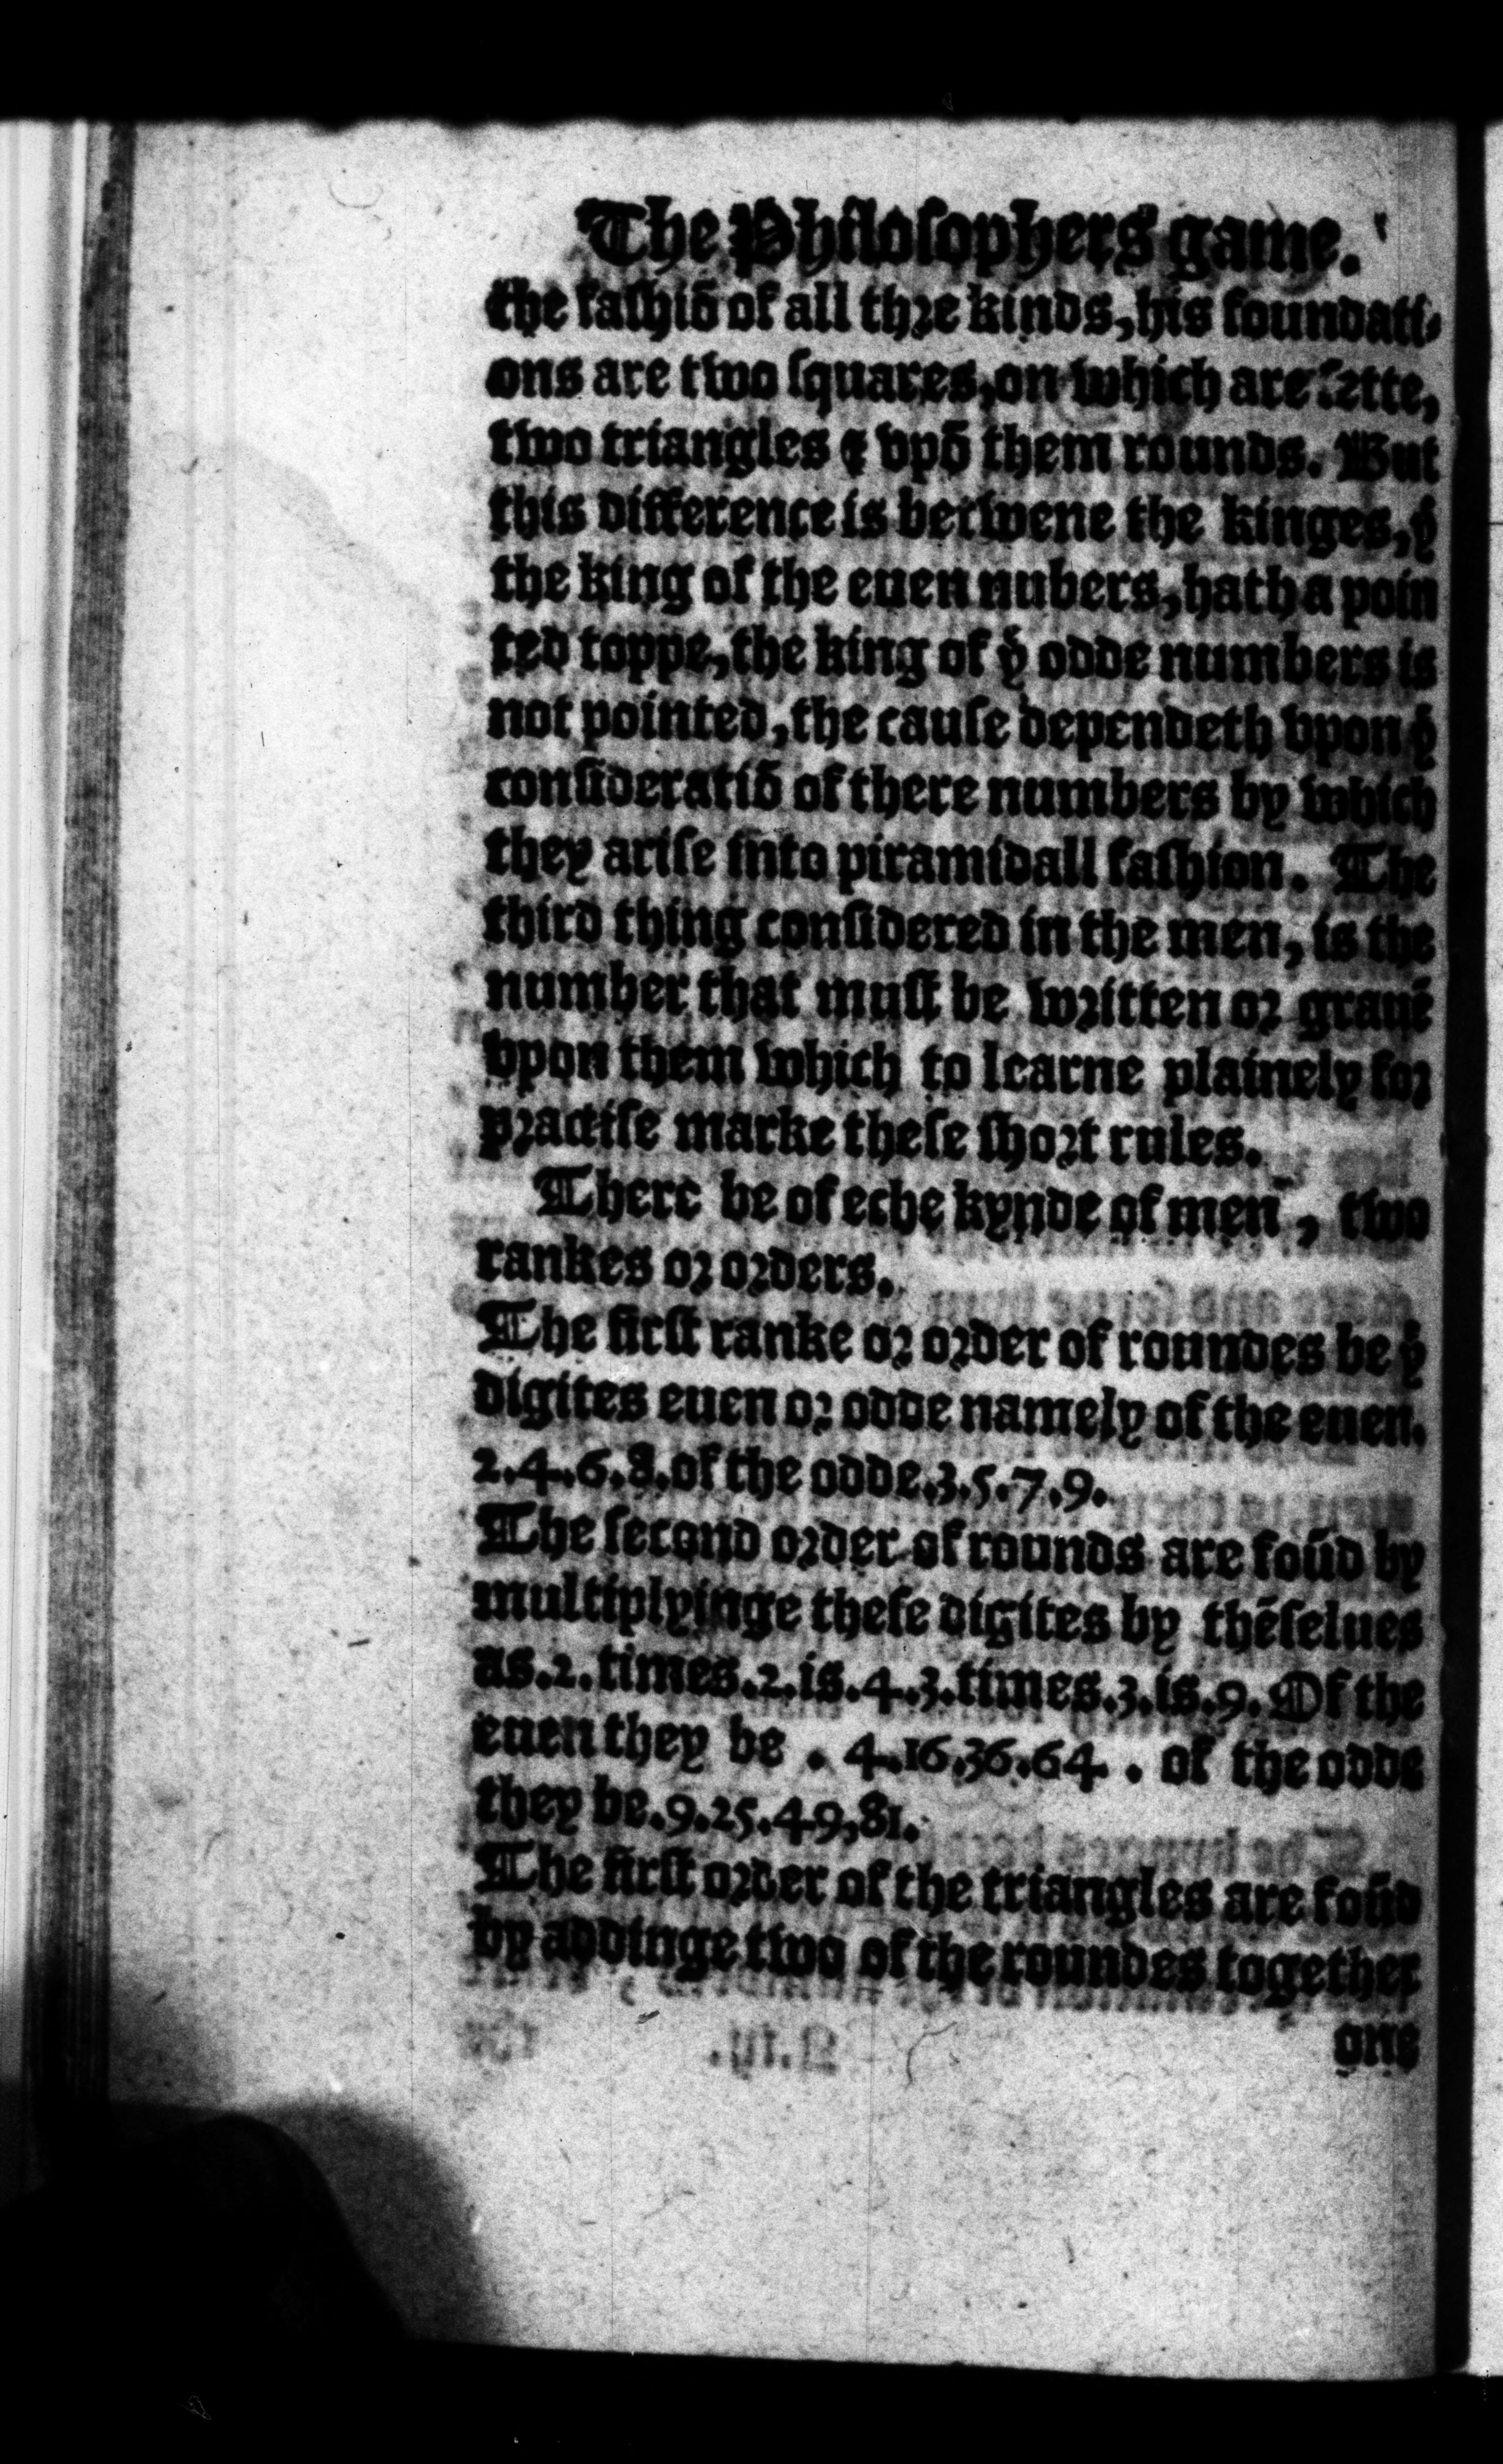 The Philoſophers game.
the faſhiō of all thre kinds, his foundati-
ons are two ſquares, on which are ſette,
two triangles & vpō them rounds. But
this difference is betwene the kinges, yͭ
the king of the euen nubers, hath a poin
ted toppe, the king of yͤ odde numbers is
not pointed, the cauſe dependeth vpon yͤ
conſideratiō of there numbers by which
they ariſe into piramidall faſhion. The
third thing conſidered in the men, is the
number that muſt be written or grauē
vpon them which to learne plainely for
practiſe marke theſe ſhort rules.
There be of eche kynde of men, two
rankes or orders.
The firſt ranke or order of roundes be yͤ
digites euen or odde namely of the euen.
2.4.6.8.of the odde.3.5.7.9.
The ſecond order of rounds are foūd by
multiplyinge theſe digites by thēſelues
as.2.times.2.is.4.3.times.3.is.9. Of the
euen they be . 4.16.36.64 . of the odde
they be.9.25.49,81.
The firſt order of the triangles are foūd
by addinge two of the roundes together
one